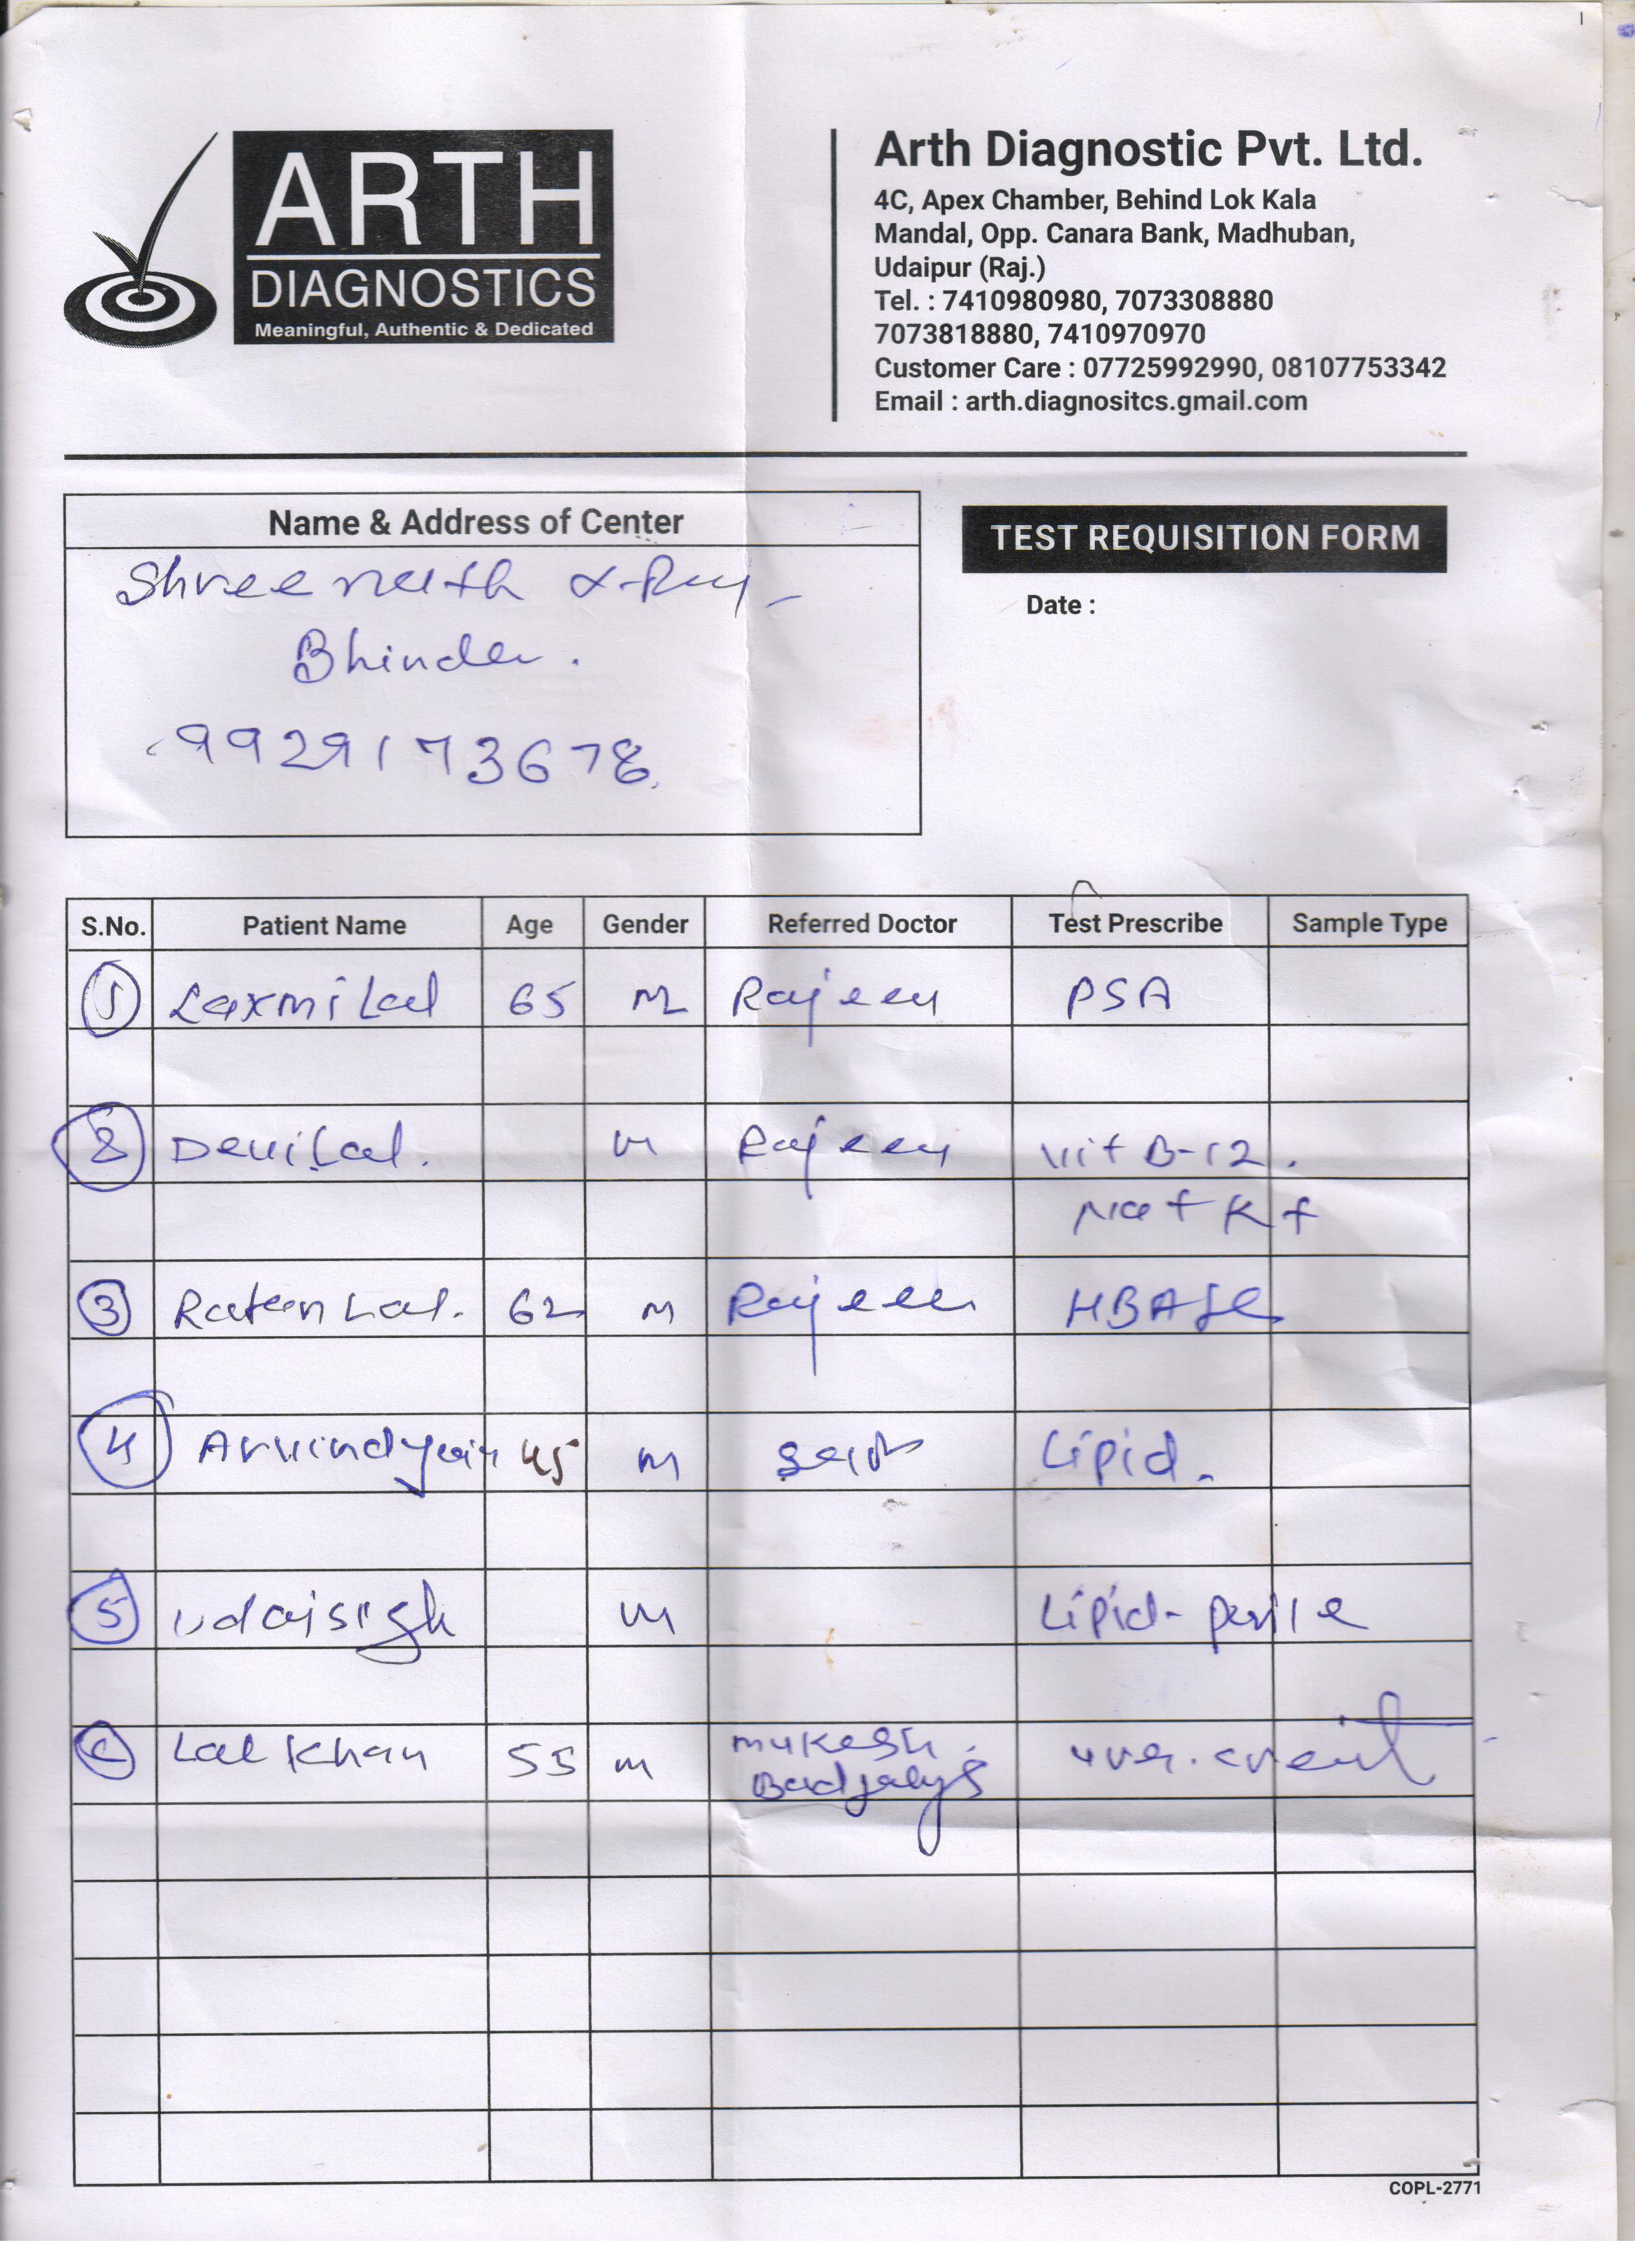 ARTH
DIAGNOSTICS
Meaningful, Authentic & Dedicated
Arth Diagnostic Pvt. Ltd.
4C, Apex Chamber, Behind Lok Kala
Mandal, Opp. Canara Bank, Madhuban,
Udaipur (Raj.)
Tel. : 7410980980, 7073308880
7073818880, 7410970970
Customer Care : 07725992990, 08107753342
Email : arth.diagnositcs.gmail.com
Name & Address of Center
Shreenath X-Ray
Bhinder.
9929173678
TEST REQUISITION FORM
Date :
S.No. Patient Name Age Gender Referred Doctor Test Prescribe Sample Type
1 Laxmi Lal 65 M Rajeev PSA
2 Devilal. M Rajeev Vit B-12.
Na+ K+
3 Ratan Lal. 62 M Rajeev
4 Arvind 45 M Lipid.
5 Udaisigh M Lipid-
6 Lal Khan 55 M Mukesh
COPL-2771